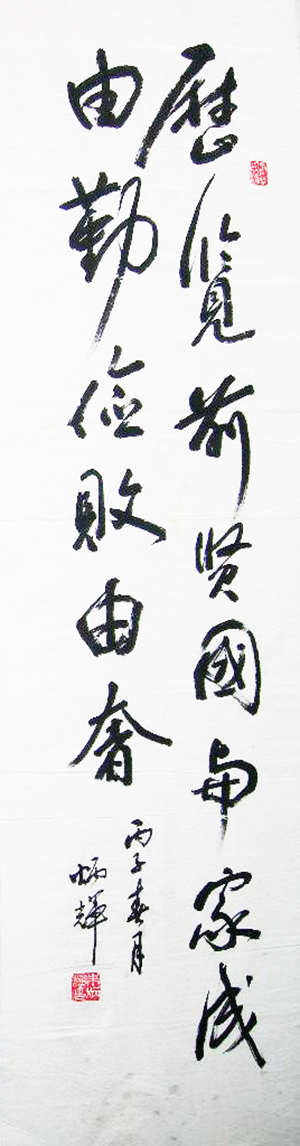 歷覽前贤國與家成
由勤儉敗由奢
丙子春月
炳輝